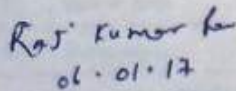 Raj Kumar
06.01.17